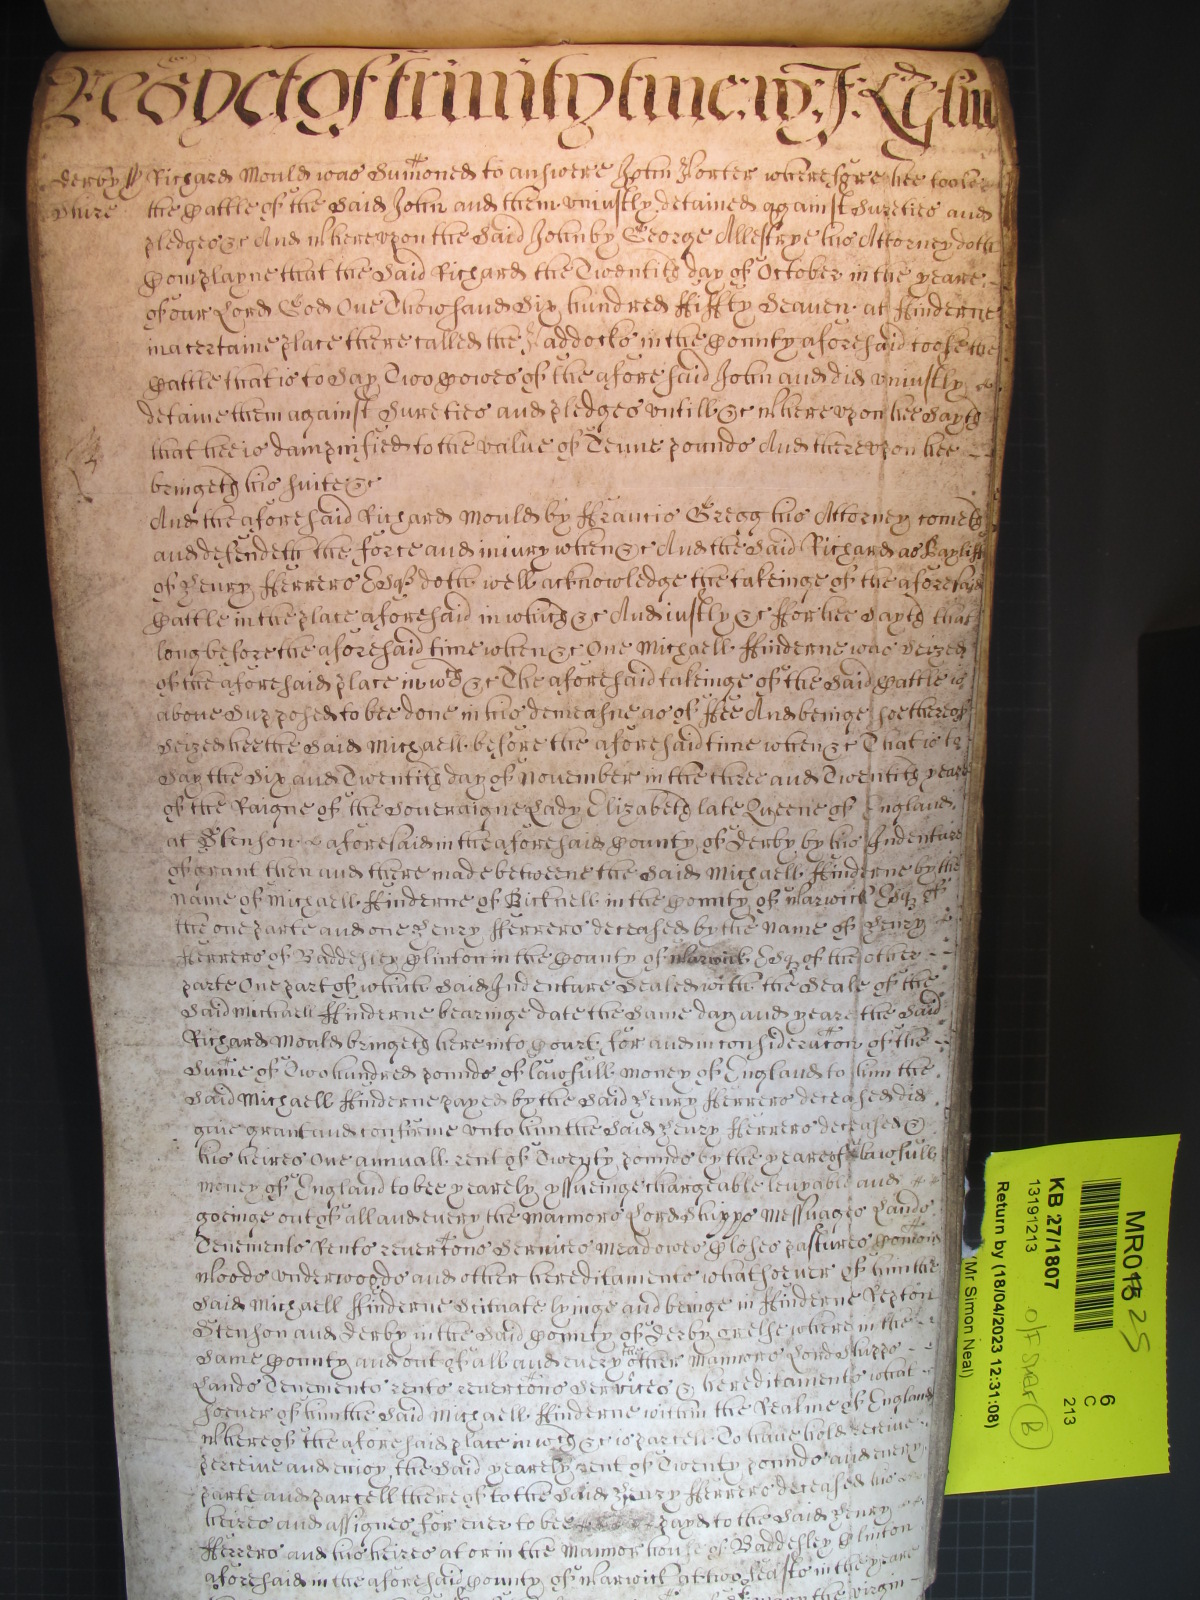 yet of trinity
Derby Richard Mould was Sumoned to answere John Porter wherefore hee tooke
Shire the Cattle of the Said John and them uniustly detained against Sureties and
pledges &c And Whereupon the Said John by George Allestrye his Attorney doth
Complayne that the Said Richard the Twentith day of October in the yeare
of our Lord God One Thowsand Six hundred ffiffty Seaven at ffinderne
in a certaine place there called the Paddocks in the County aforesaid tooke the
Cattle that is to Say Two Cowes of the aforesaid John and did uniustly
detaine them against Sureties and pledges untill &c Whereupon hee Sayth
that hee is dampnified to the value of Tenne pounds And thereupon hee
bringeth his suite &c
And the aforesaid Richard Mould by ffrancis Gregg his Attorney cometh
and defendeth the force and iniury when &c And the Said Richard as Bayliff
of Henry fferrers Esqr doth well acknowledge the takeinge of the aforesaid
Cattle in the place aforesaid in which &c And iustly &c ffor hee Sayth that
long before the aforesaid time when &c One Michaell ffinderne was Seized
of the aforesaid place in wch &c The aforesaid takeinge of the Said Cattle is
above Supposed to bee done in his demeasne as of ffee And beinge soe thereof
Seized hee the Said Michaell before the aforesaid time when &c That is to
Say the Six and Twentith day of November in the three and Twentith yeare
of the Raigne of the Soveraigne Lady Elizabeth late Queene of England
at Stenson aforesaid in the aforesaid County of Derby by his Indenture
of grant then and there made betweene the Said Michaell ffinderne by the
Name of Michaell ffinderne of Bicknell in the County of Warwick Esqr of
the one parte and one Henry fferrers deceased by the Name of Henry
fferrers of Baddesley Clinton in the County of Warwick Esqr of the other
parte One part of which Said Indenture Sealed with the Seale of the
Said Michaell ffinderne bearinge date the Same day and yeare the Said
Richard Mould bringeth here into Court for and in consideracon of the
Sume of Two hundred pounds of lawfull money of England to him the
Said Michaell ffinderne payed by the Said Henry fferrers deceased did
give grant and confirme unto him the Said Henry fferrers deceased &
his heires One annuall rent of Twenty pounds by the yeare of lawfull
money of England to bee yearely yssueinge chargeable levyable and
goeinge out of all and every the Mannors Lordshipps Messuages Lands
Tenements Rents revertons Services Meadowes Closes pastures Comons
Woods underwoods and other hereditaments whatsoever of him the
Said Michaell ffinderne Scituate lyinge and beinge in ffinderne Repton
Stenson and Derby in the Said County of Derby or elsewhere in the
Same County and out of all and every the other Mannors Lordshipps
Lands Tenements rents revertons Services & hereditaments what
soever of him the Said Michaell ffinderne within the Realme of England
Whereof the aforesaid place in wch &c is parcell To have hold receive
perceive and enioy the Said yearely rent of Twenty pounds and every
parte and parcell thereof to the Said Henry fferrers deceased his
heires and assignes for ever to bee payd to the Said Henry
fferrers and his heires at or in the Mannor house of Baddesley Clinton
aforesaid in the aforesaid County of Warwick at two feasts in the yeare
virgin
MR018 25
6
C
213
KB 27/1807
13191213
O/F Shelf (B)
Return by (18/04/2023 12:31:08)
(Mr Simon Neal)